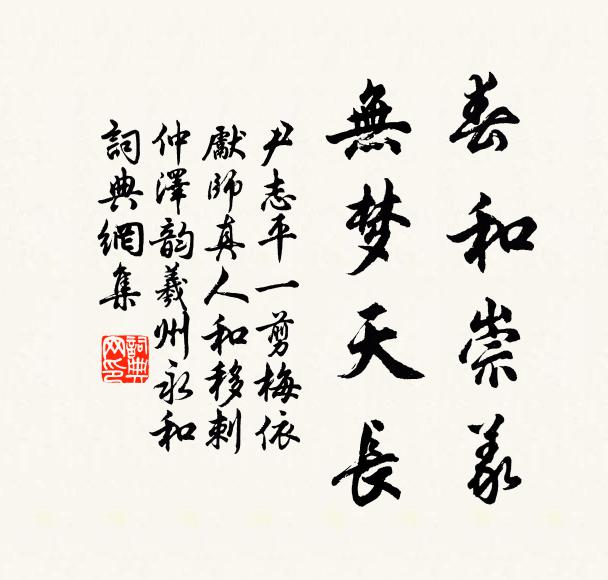 春和崇義
無梦天長
尹志平一剪梅依
獻師真人和移剌
仲澤韵義州永和
詞典網集
詞典
网印